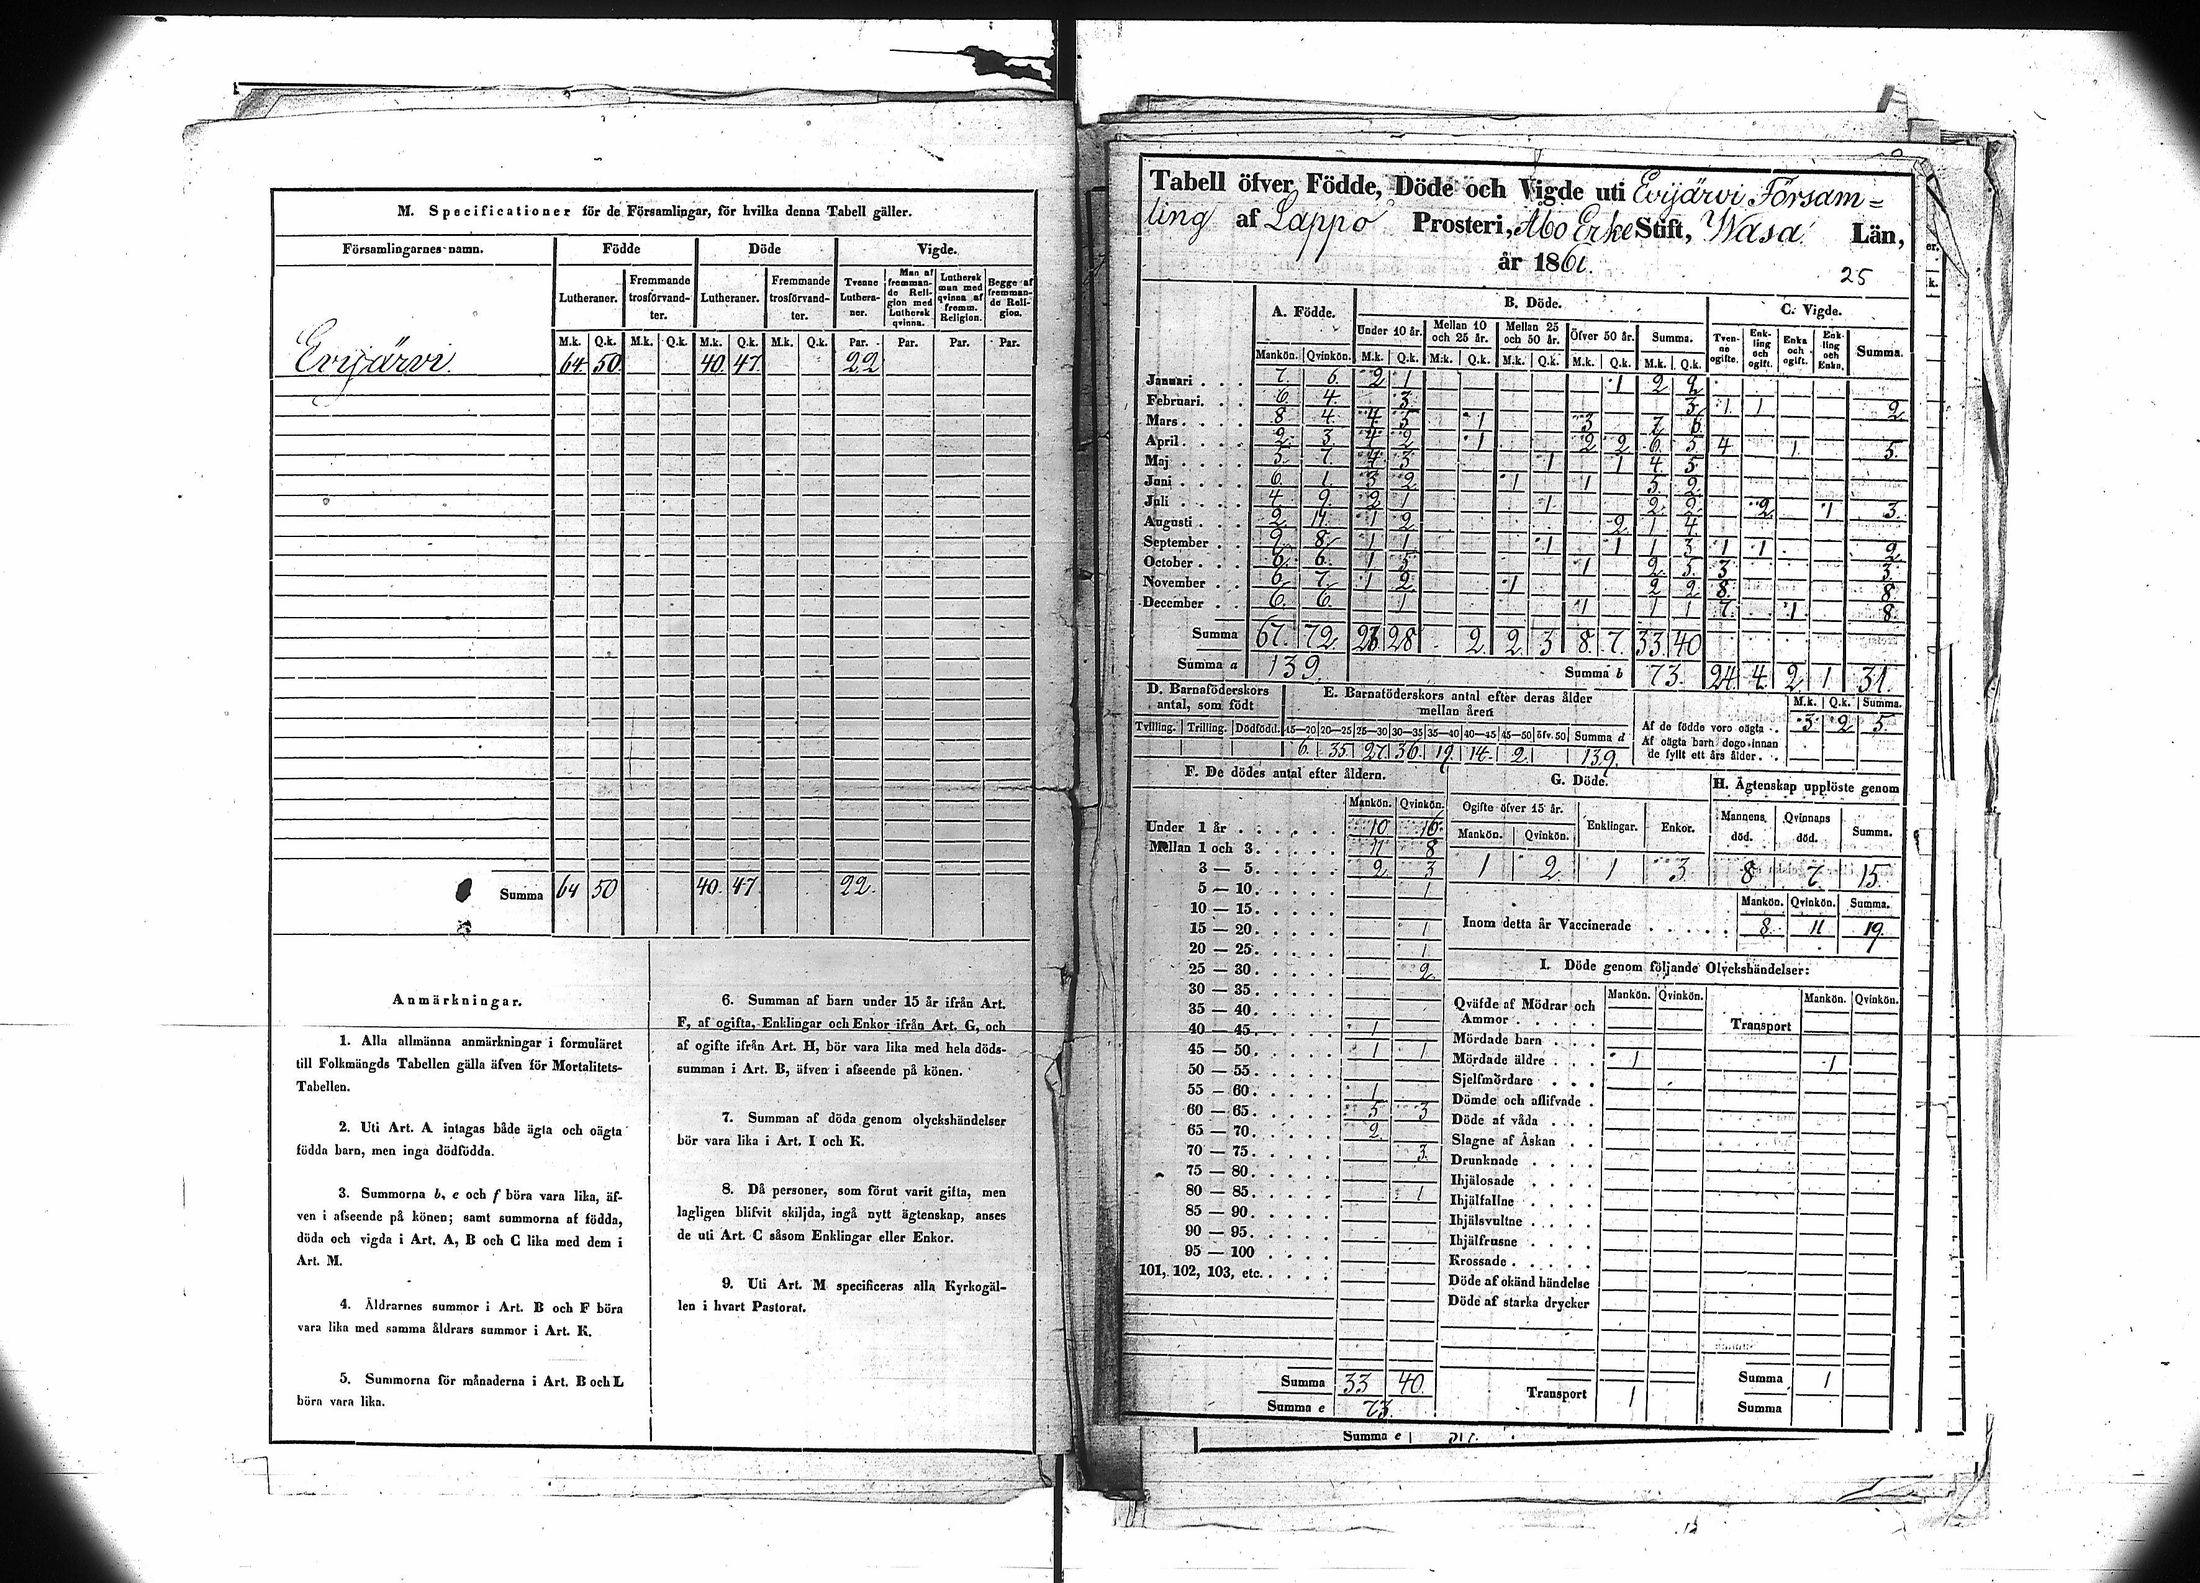 M. Specificationer för de Församlingar, för hvilka denna Tabell gäller.
Församlingarnes namn. Födde Döde Vigde.
Lutheraner. Fremmande trosförvandter. Lutheraner. Fremmande trosförvandter. Tvenne Lutheraner. Man af fremmande Religion med Luthersk qvinna. Luthersk man med qvinna af fremm. Religion. Begge af fremmande Religion.
M.k. Q.k. M.k. Q.k. M.k. Q.k. M.k. Q.k. Par. Par. Par. Par.
Evijärvi 64 50 40 47 22
Summa 64 50 40 47 22
Anmärkningar.
1. Alla allmänna anmärkningar i formuläret
till Folkmängds Tabellen gälla äfven för Mortalitets-
Tabellen.
2. Uti Art. A intagas både ägta och oägta
födda barn, men inga dödfödda.
3. Summorna b, e och f böra vara lika, äf-
ven i afseende på könen; samt summorna af födda,
döda och vigda i Art. A, B och C lika med dem i
Art. M.
4. Åldrarnes summor i Art. B och F böra
vara lika med samma åldrars summor i Art. K.
5. Summorna för månaderna i Art. B och L
böra vara lika.
6. Summan af barn under 15 år ifrån Art.
F, af ogifta, Enklingar och Enkor ifrån Art. G, och
af ogifte ifrån Art. H, bör vara lika med hela döds-
summan i Art. B, äfven i afseende på könen.
7. Summan af döda genom olyckshändelser
bör vara lika i Art. I och K.
8. Då personer, som förut varit gifta, men
lagligen blifvit skiljda, ingå nytt ägtenskap, anses
de uti Art. C såsom Enklingar eller Enkor.
9. Uti Art. M specificeras alla Kyrkogäl-
len i hvart Pastorat.
Tabell öfver Födde, Döde och Vigde uti Evijärvi Församling
af Lappo Prosteri, Åbo Erke Stift, Wasa Län,
år 1861.
25
A. Födde. B. Döde. C. Vigde.
Under 10 år. Mellan 10 och 25 år. Mellan 25 och 50 år. Öfver 50 år. Summa. Tvenne ogifte. Enkling och ogift. Enka och ogift. Enkling och Enka. Summa.
Mankön. Qvinkön. M.k. Q.k. M.k. Q.k. M.k. Q.k. M.k. Q.k. M.k. Q.k.
Januari 7 6 2 1 1 2 2
Februari 6 4 3 3 1 1 2
Mars 8 4 4 5 1 3 7 6
April 2 3 4 2 1 2 2 6 5 4 1 5
Maj 5 7 4 3 1 1 4 5
Juni 6 1 3 2 1 1 5 2
Juli 4 9 2 1 1 2 2 2 1 3
Augusti 2 11 1 2 2 1 4
September 9 8 1 1 1 1 1 3 1 1 2
October 6 6 1 5 1 2 5 3 3
November 6 7 1 2 1 2 2 8 8
December 6 6 1 1 1 1 7 1 8
Summa 67 72 23 28 2 2 3 8 7 33 40
Summa a 139 Summa b 73 24 4 2 1 31
D. Barnaföderskors antal, som födt
Tvilling. Trilling. Dödfödd.
E. Barnaföderskors antal efter deras ålder mellan åren
15—20 20—25 25—30 30—35 35—40 40—45 45—50 öfv. 50 Summa d
6 35 27 36 19 14 2 139
M.k. Q.k. Summa.
Af de födde voro oägta 3 2 5
Af oägta barn dogo innan
de fyllt ett års ålder
F. De dödes antal efter åldern.
Mankön. Qvinkön.
Under 1 år 10 16
Mellan 1 och 3 11 8
3 — 5 2 3
5 — 10 1
10 — 15
15 — 20 1
20 — 25 1
25 — 30 2
30 — 35
35 — 40
40 — 45 1
45 — 50 1 1
50 — 55
55 — 60 1
60 — 65 5 3
65 — 70 2
70 — 75 3
75 — 80
80 — 85 1
85 — 90
90 — 95
95 — 100
101, 102, 103, etc.
Summa 33 40
Summa e 73
G. Döde.
Ogifte öfver 15 år. Enklingar. Enkor.
Mankön. Qvinkön.
1 2 1 3
H. Ägtenskap upplöste genom
Mannens död. Qvinnans död. Summa.
8 7 15
Mankön. Qvinkön. Summa.
Inom detta år Vaccinerade 8 11 19
I. Döde genom följande Olyckshändelser:
Mankön. Qvinkön. Mankön. Qvinkön.
Qväfde af Mödrar och
Ammor Transport
Mördade barn
Mördade äldre 1 1
Sjelfmördare
Dömde och aflifvade
Döde af våda
Slagne af Åskan
Drunknade
Ihjälosade
Ihjälfallne
Ihjälsvultne
Ihjälfrusne
Krossade
Döde af okänd händelse
Döde af starka drycker
Summa 1
Transport 1
Summa
Summa e